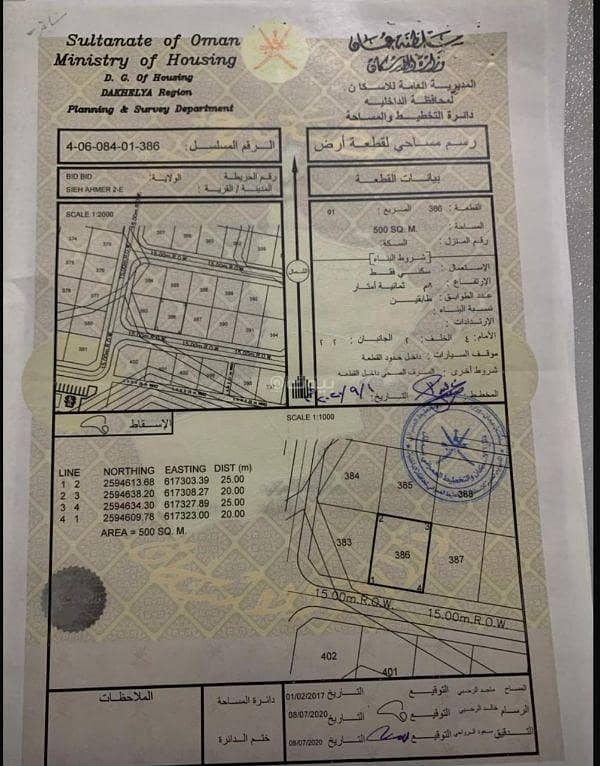 Sultanate of Oman
Ministry of Housing
D. G. Of Housing
DAKHELYA Region
Planning & Survey Department
سلطنة عمان
وزارة الإسكان
المديرية العامة للاسكان
لمحافظة الداخليه
دائرة التخطيط والمساحة
الرقم المسلسل : 4-06-084-01-386
رسم مساحي لقطعة أرض
BID BID الولاية: رقم الخريطة :
SIEH AHMER 2-E المدينة / القرية :
بيانات القطعة
SCALE 1:2000
15.00m.R.O.W.
15.00m.R.O.W.
15.00m.R.O.W.
الشمال
القطعة : 386 المربع : 01
المساحة : 500 SQ. M.
رقم المنزل : السكة:
[شروط البناء]
الاستعمال : سكني فقط
الارتفاع : ٨م ثمانية أمتار
عدد الطوابق : طابقين
نسبة البناء :
الإرتدادات :
الأمام: ٤ الخلف: ٢ الجانبان : ٢ ٢
موقف السيارات : داخل حدود القطعة
شروط أخرى : الصرف الصحي داخل القطعة
المخطط : التاريخ :
الإسقاط
SCALE 1:1000
LINE NORTHING EASTING DIST (m)
1 2 2594613.68 617303.39 25.00
2 3 2594638.20 617308.27 20.00
3 4 2594634.30 617327.89 25.00
4 1 2594609.78 617323.00 20.00
AREA = 500 SQ. M.
384
385
388
2
3
383
386
387
1
4
15.00m.R.O.W.
15.00m.R.O.W.
402
401
الملاحظات
دائرة المساحة
ختم الدائرة
المساح التوقيع التاريخ 01/02/2017
الرسام التوقيع التاريخ 08/07/2020
التدقيق التوقيع التاريخ 08/07/2020